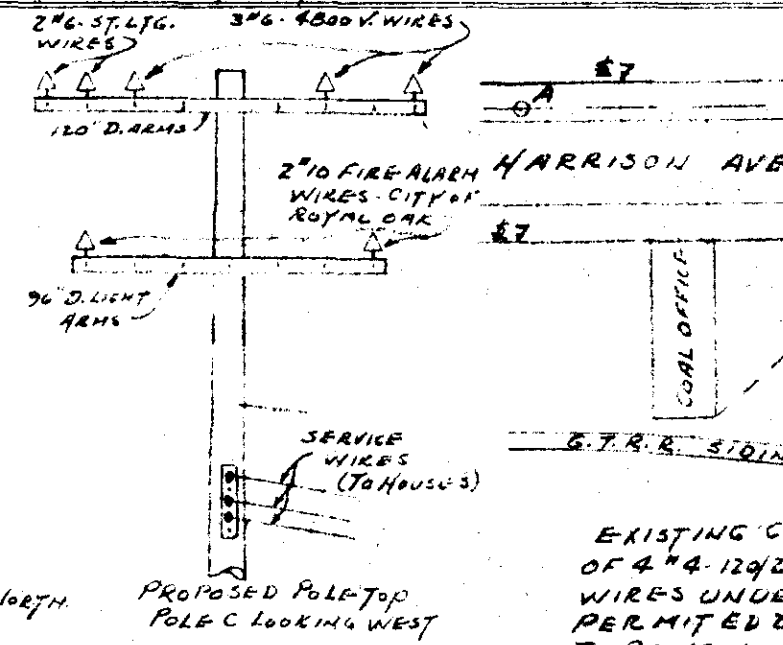 2 #6. ST. LTG.
WIRES
3 #6 - 4800 V. WIRES
120" D. ARMS
2 #10 FIRE ALARM
WIRES - CITY OF
ROYAL OAK
96" D. LIGHT
ARMS
SERVICE
WIRES
(TO HOUSES)
NORTH.
PROPOSED POLE TOP
POLE C LOOKING WEST
£7
A
HARRISON AVE
£7
COAL OFFICE
G.T.R.R. SIDIN
EXISTING C
OF 4 #4 - 120/2
WIRES UNDE
PERMIT ED 2